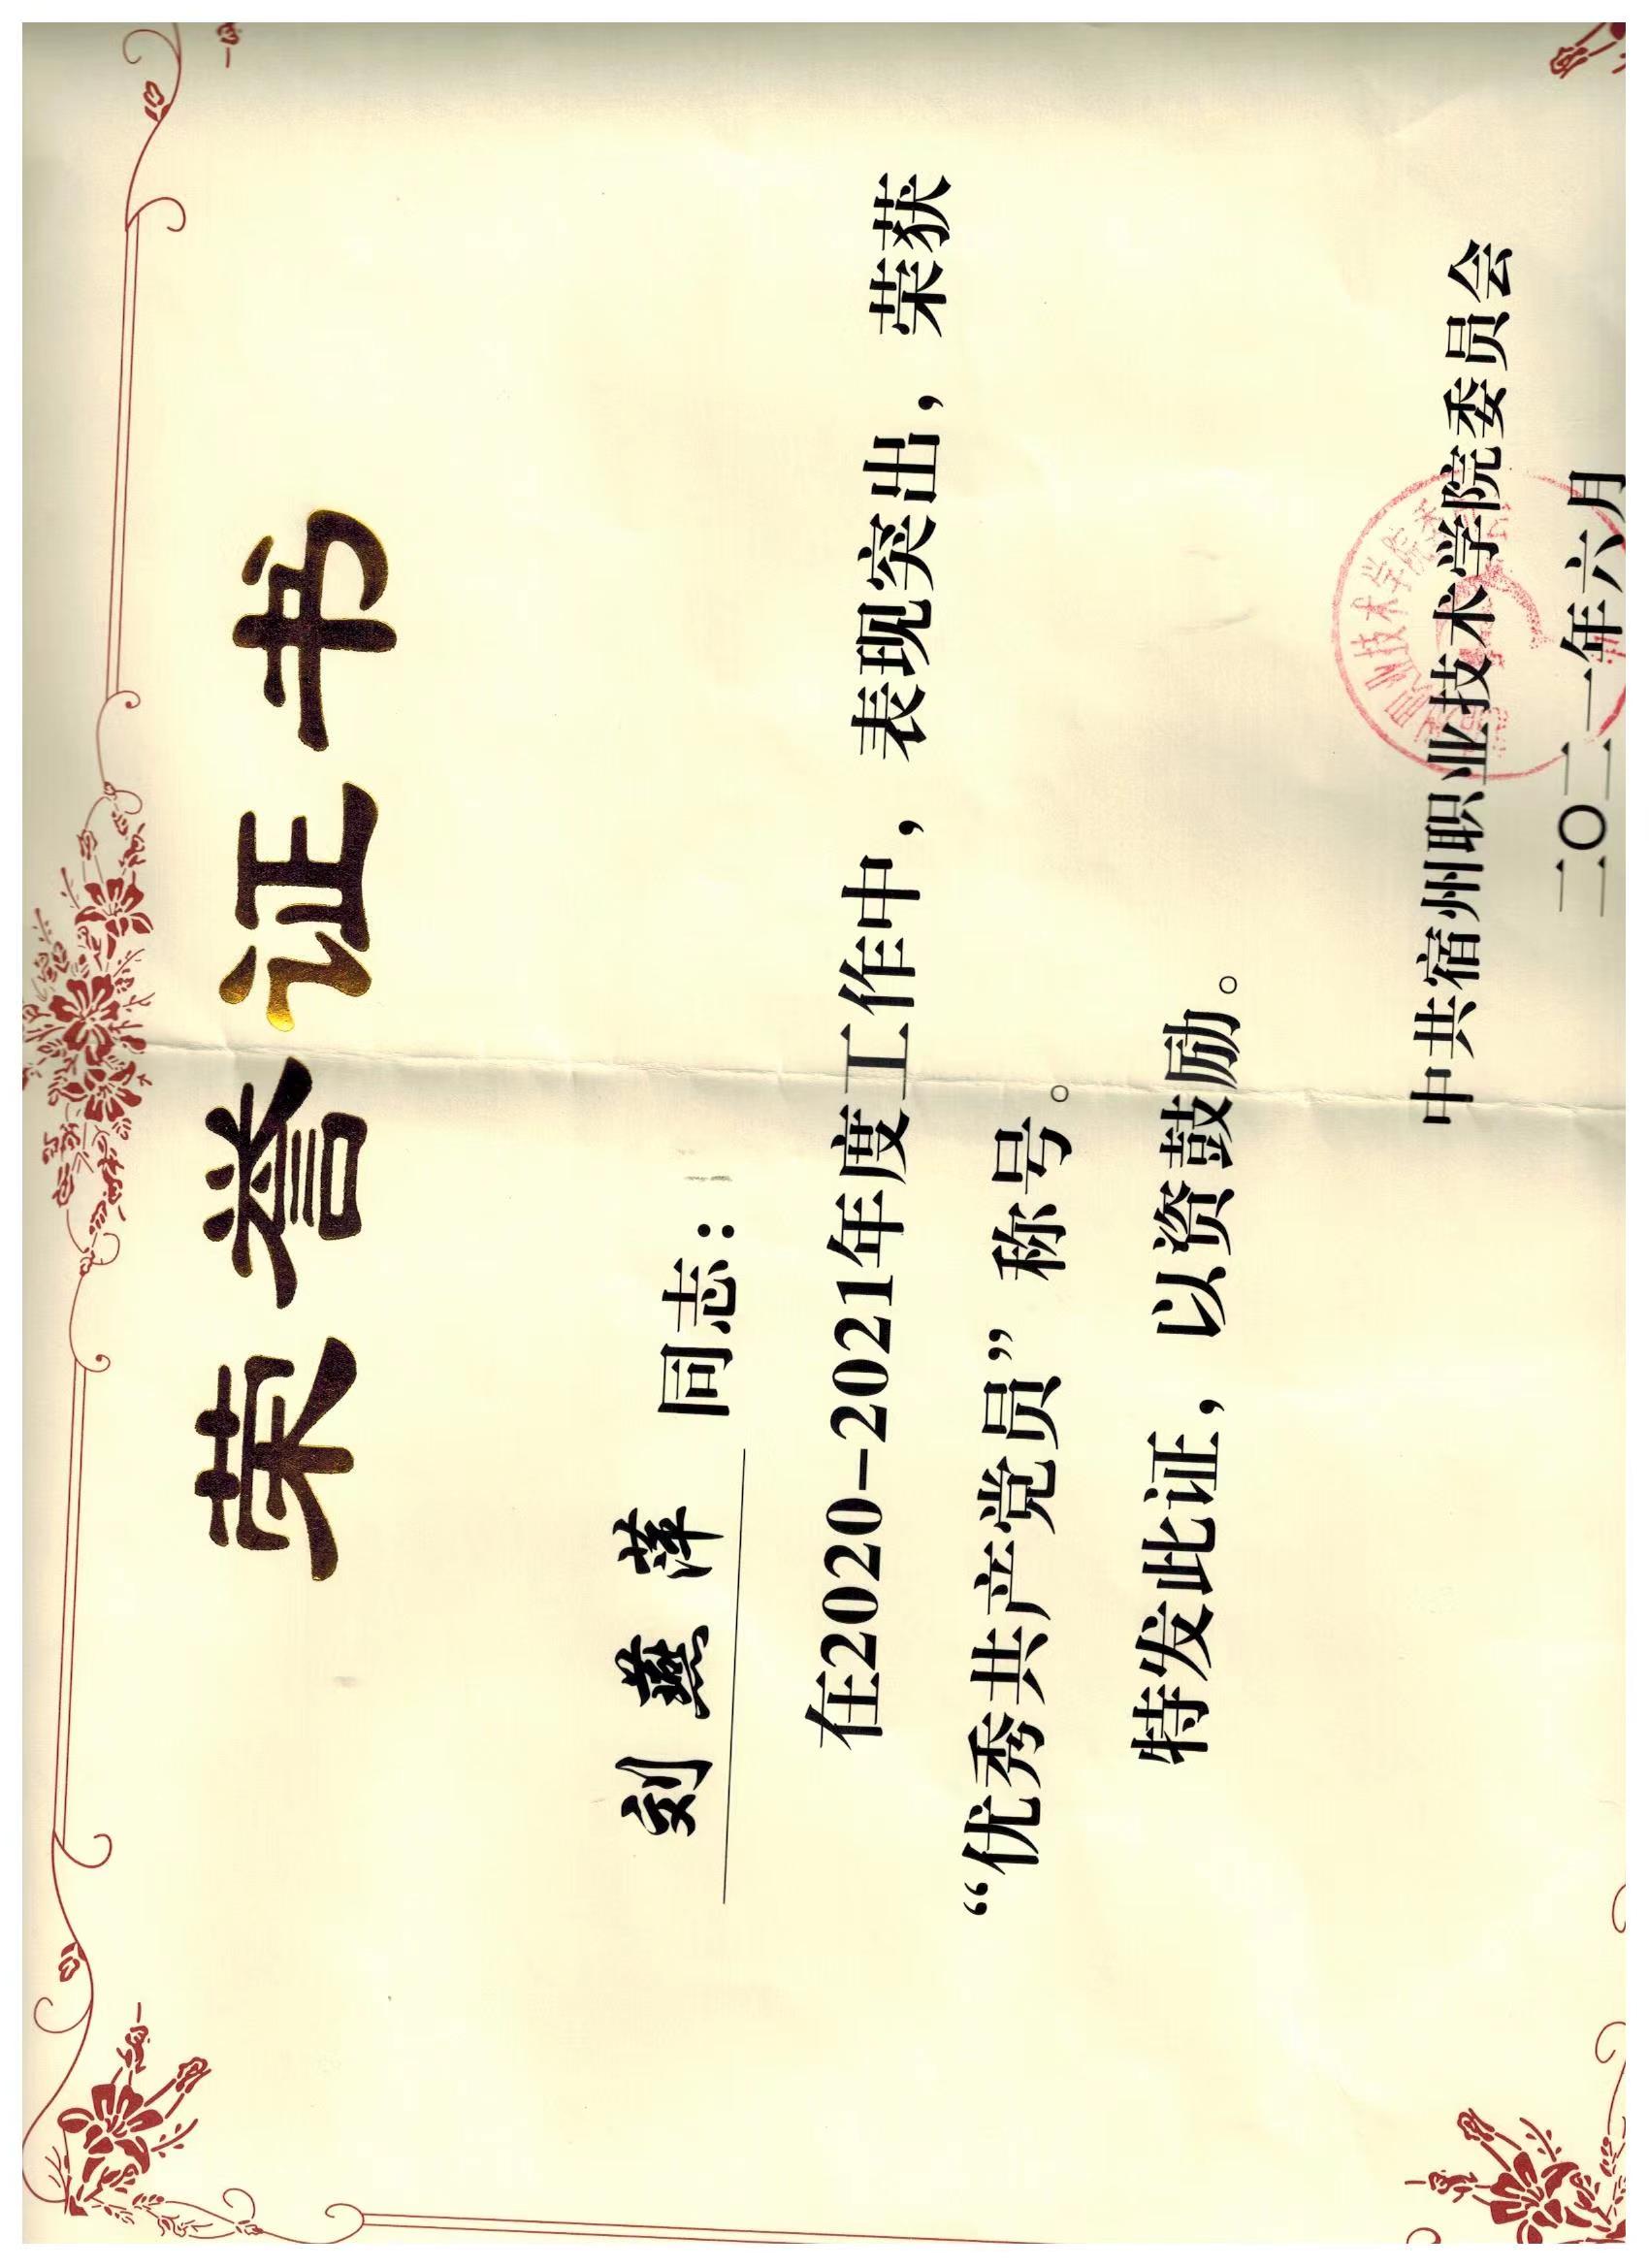 荣誉证书
刘燕萍 同志：
在2020-2021年度工作中，表现突出，荣获
“优秀共产党员”称号。
特发此证，以资鼓励。
中共宿州职业技术学院委员会
二〇二一年六月
职业技术学院